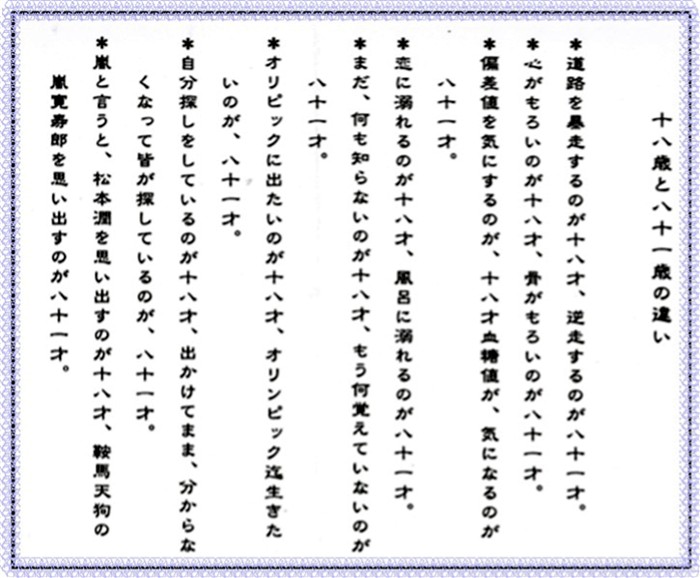 十八歳と八十一歳の違い
＊道路を暴走するのが十八才、逆走するのが八十一才。
＊心がもろいのが十八才、骨がもろいのが八十一才。
＊偏差値を気にするのが、十八才血糖値が、気になるのが
八十一才。
＊恋に溺れるのが十八才、風呂に溺れるのが八十一才。
＊まだ、何も知らないのが十八才、もう何覚えていないのが
八十一才。
＊オリピックに出たいのが十八才、オリンピック迄生きた
いのが、八十一才。
＊自分探しをしているのが十八才、出かけてまま、分からな
くなって皆が探しているのが、八十一才。
＊嵐と言うと、松本潤を思い出すのが十八才、鞍馬天狗の
嵐寛寿郎を思い出すのが八十一才。